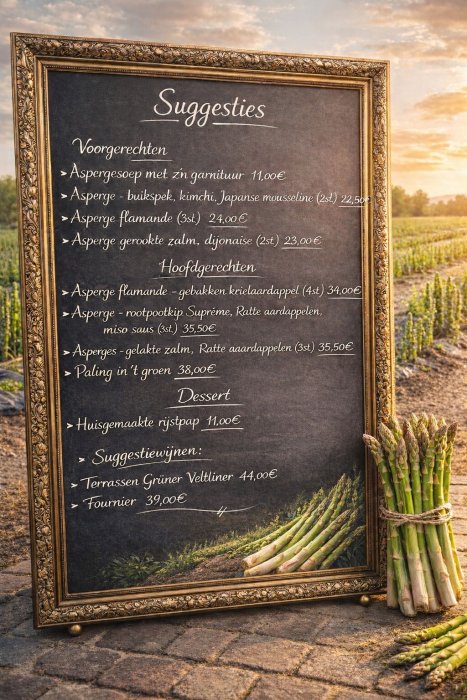 Suggesties
Voorgerechten
➤ Aspergesoep met z'n garnituur 11,00€
➤ Asperge - buikspek, kimchi, Japanse mousseline (2st) 22,50€
➤ Asperge flamande (3st) 24,00€
➤ Asperge gerookte zalm, dijonaise (2st) 23,00€
Hoofdgerechten
➤ Asperge flamande - gebakken krielaardappel (4st) 34,00€
➤ Asperge - rootpootkip Suprème, Ratte aardappelen,
miso saus (3st) 35,50€
➤ Asperges - gelakte zalm, Ratte aaardappelen (3st) 35,50€
➤ Paling in 't groen 38,00€
Dessert
➤ Huisgemaakte rijstpap 11,00€
➤ Suggestiewijnen:
➤ Terrassen Grüner Veltliner 44,00€
➤ Fournier 39,00€